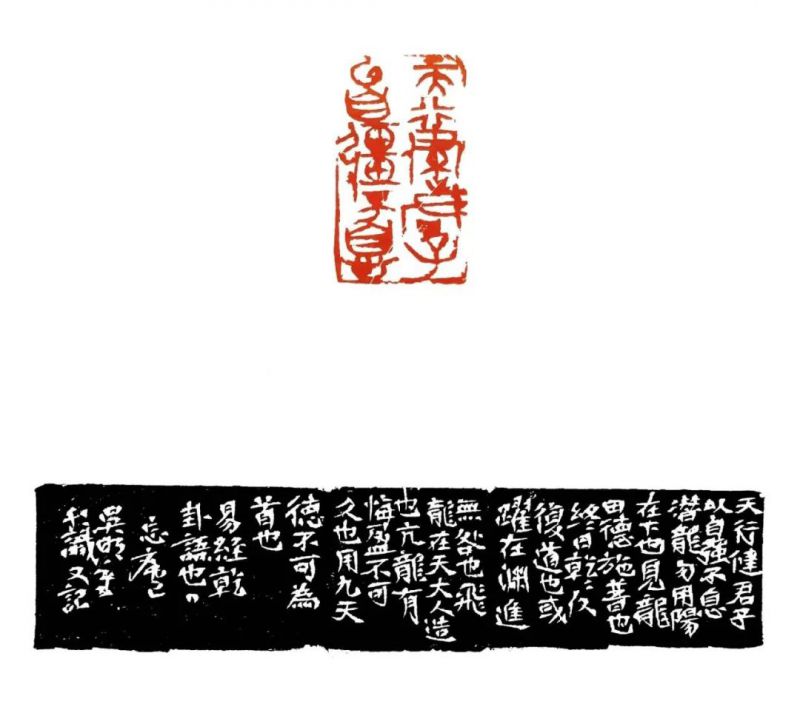 天行健君子
以自彊不息
天行健君子
以自強不息
潛龍勿用陽
在下也見龍
田德施普也
終日乾乾反
復道也或
躍在淵進
無咎也飛
龍在天大人造
也亢龍有
悔盈不可
久也用九天
德不可為
首也
易經乾
卦語也
忘庵
又記